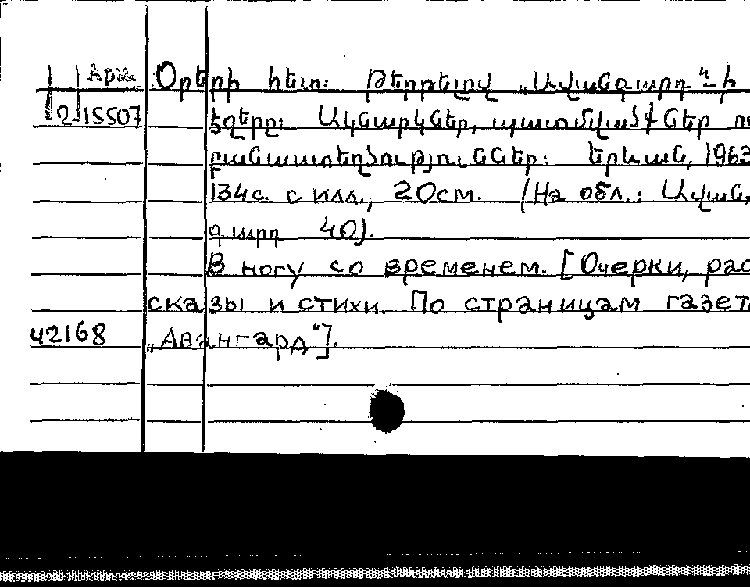 Арм Օրերի հետ։ Թերթելով „Ավանգարդ“-ի
2 15507 էջերը։ Ակնարկներ, պատմվածքներ ու
բանաստեղծություններ։ Երևան, 1963
134с. с илл., 20см. (На обл.: Ավան,
գարդ 40).
В ногу со временем. [Очерки, рас
сказы и стихи. По страницам газет
42168 „Авангард“].